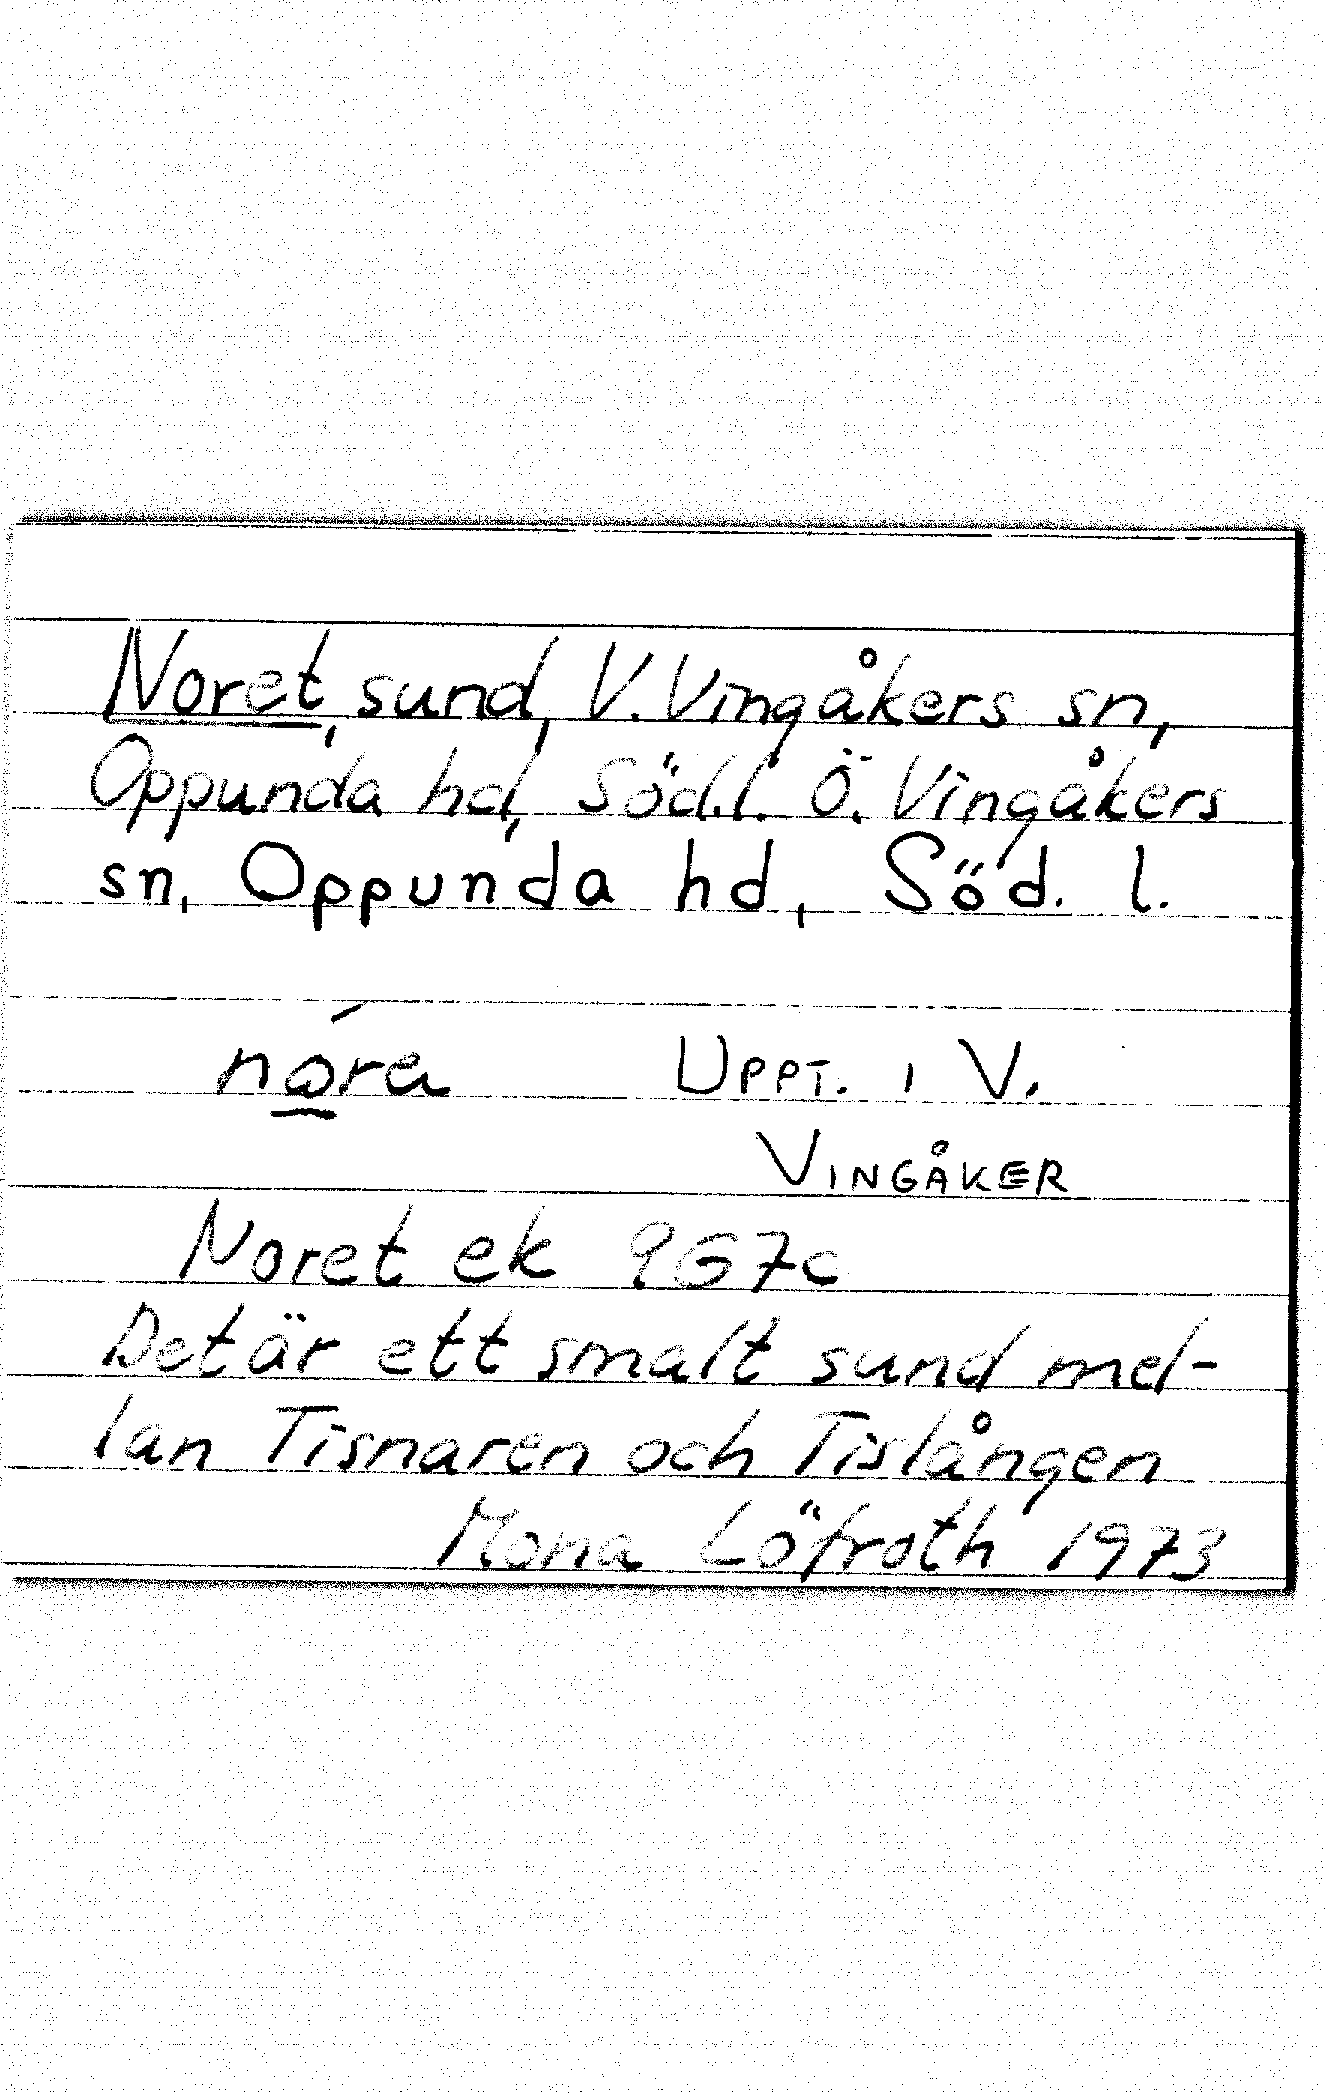 Noret, sund, V. Vingåkers sn,
Oppunda hd, Söd.l. Ö. Vingåkers
sn, Oppunda hd, Söd. l.
nǫ́ra UPPT. I V.
VINGÅKER
Noret ek 9G7c
Det är ett smalt sund mel-
lan Tisnaren och Tislången
Mona Löfroth 1973